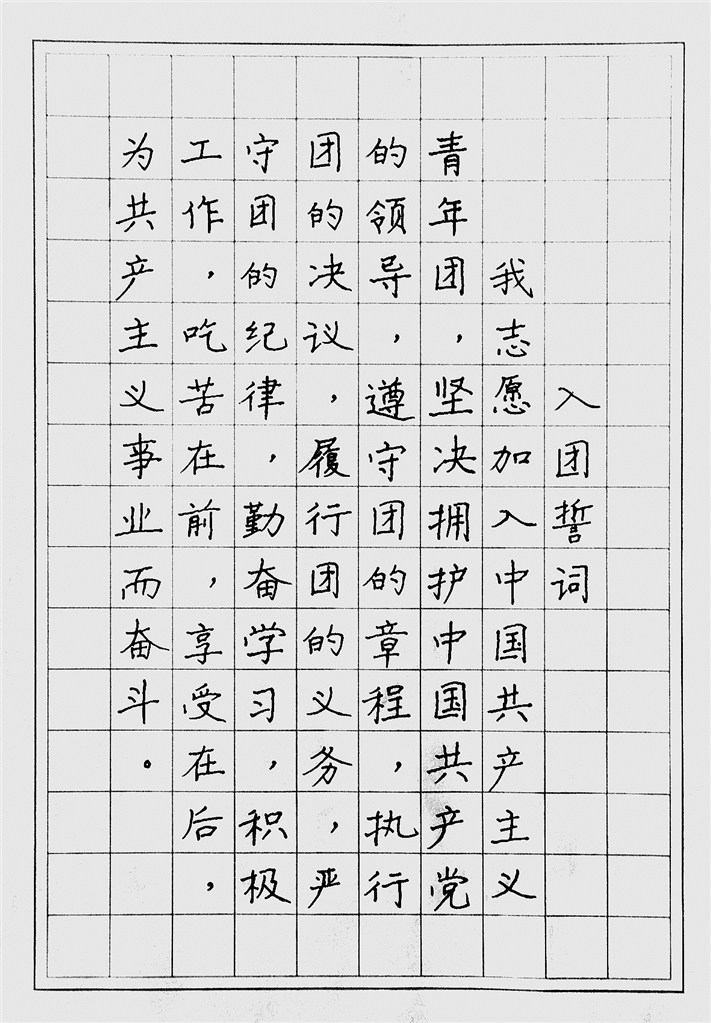 入团誓词
我志愿加入中国共产主义
青年团，坚决拥护中国共产党
的领导，遵守团的章程，执行
团的决议，履行团的义务，严
守团的纪律，勤奋学习，积极
工作，吃苦在前，享受在后，
为共产主义事业而奋斗。